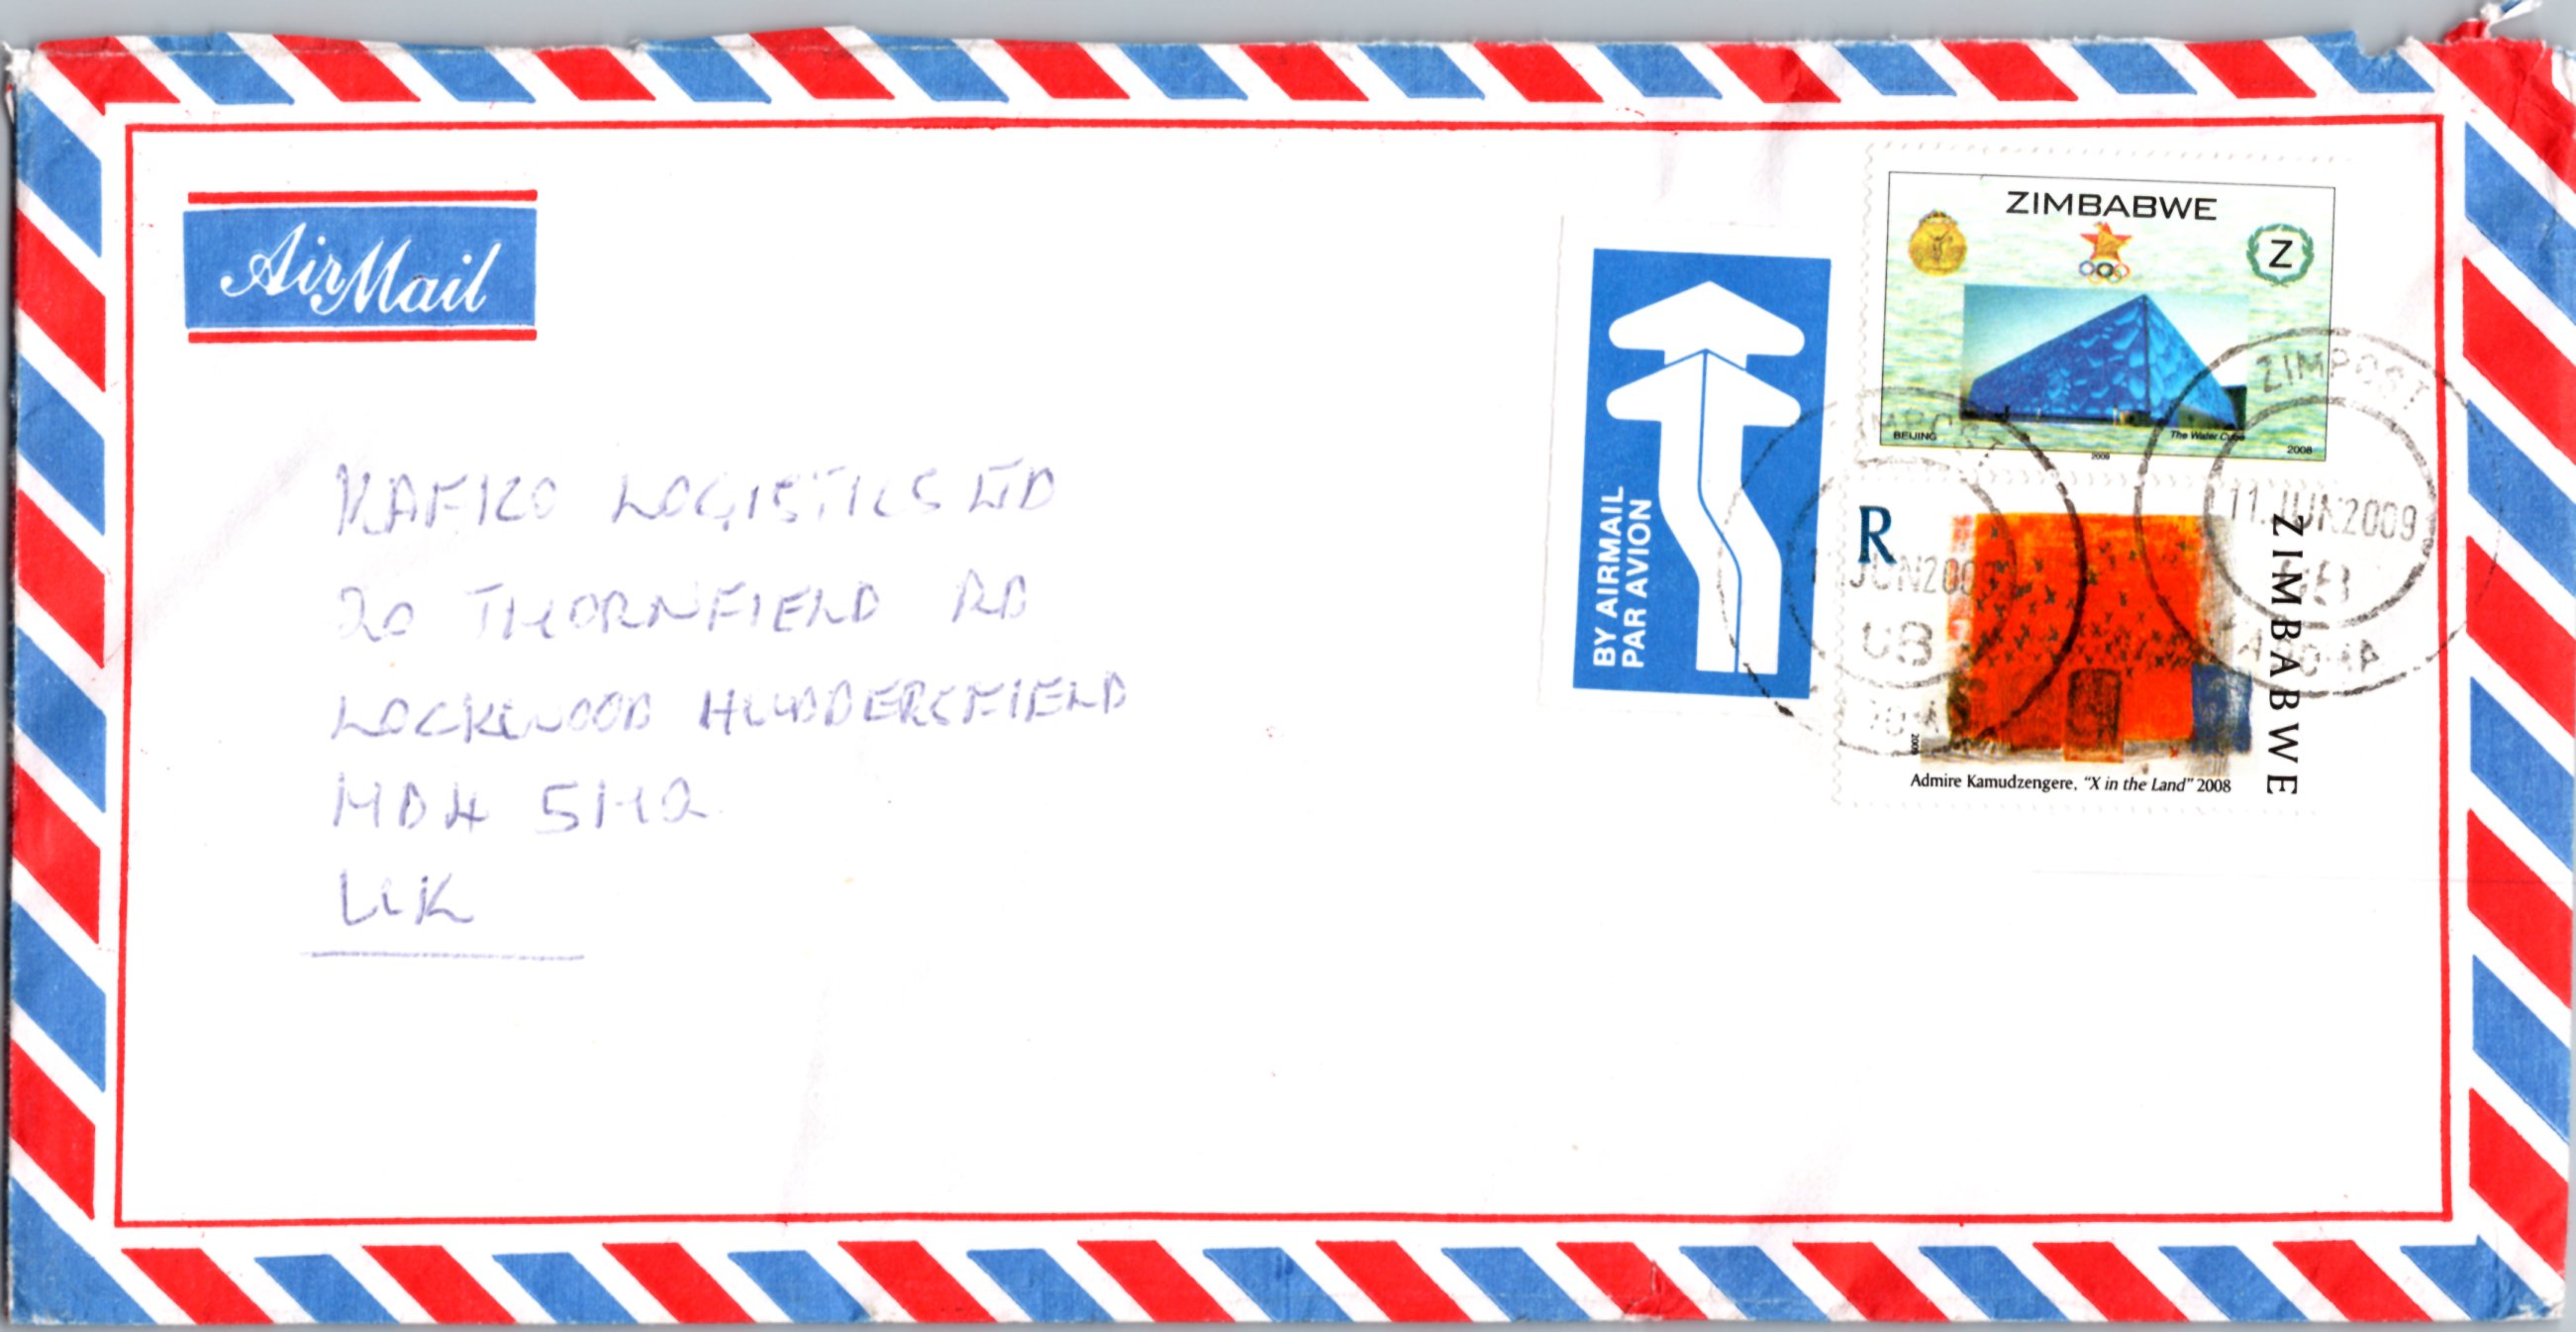 Air Mail
KAFICO LOGISTICS LTD
20 THORNFIELD RD
LOCKWOOD HUDDERSFIELD
HD4 5HQ
UK
BY AIRMAIL
PAR AVION
ZIMBABWE
Z
BEIJING
The Water Cube
2008
2008
R
ZIMBABWE
2009
Admire Kamudzengere, "X in the Land" 2008
ZIMPOST
11.JUN2009
JUN2009
UB